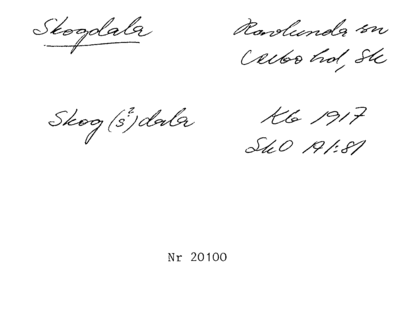 Skogdala
Ravlunda sn
Albo hd, Sk
Skog(s?)dala
Kb 1917
SkO 19 1:81
Nr 20100